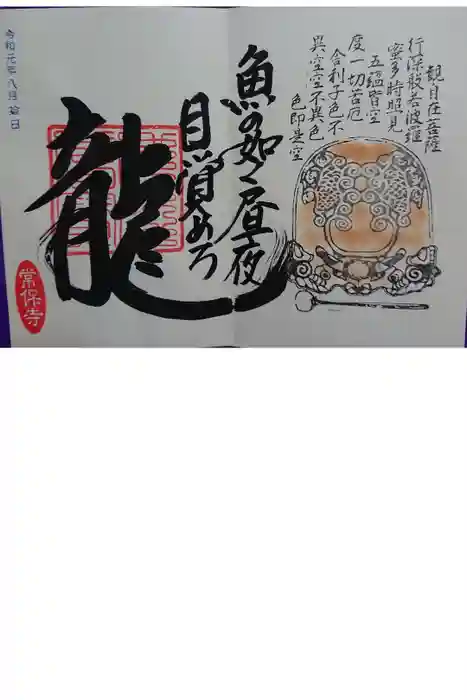 観自在菩薩
行深般若波羅
蜜多時照見
五蘊皆空
度一切苦厄
舎利子色不
異空空不異色
色即是空
魚の如く昼夜
目覚めろ
龍
常保寺
令和元年八月拾日